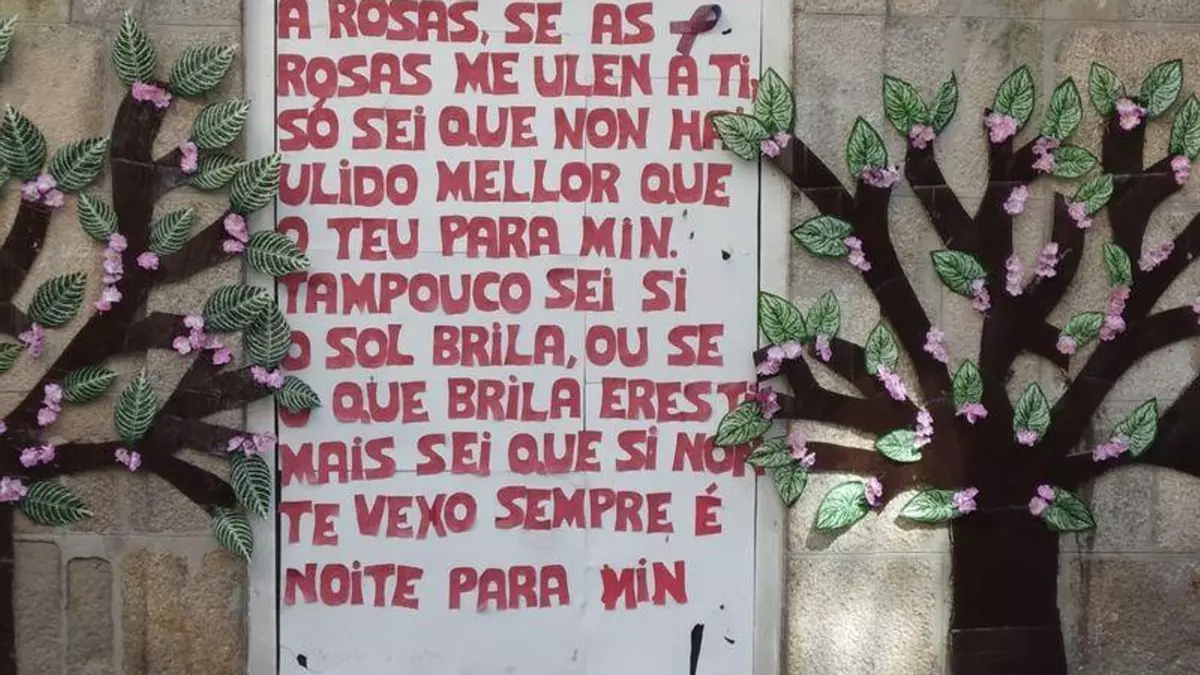 A ROSAS, SE AS
ROSAS ME ULEN A TI,
SÓ SEI QUE NON HAI
ULIDO MELLOR QUE
O TEU PARA MIN.
TAMPOUCO SEI SI
O SOL BRILA, OU SE
O QUE BRILA ERES TI
MAIS SEI QUE SI NON
TE VEXO SEMPRE É
NOITE PARA MIN